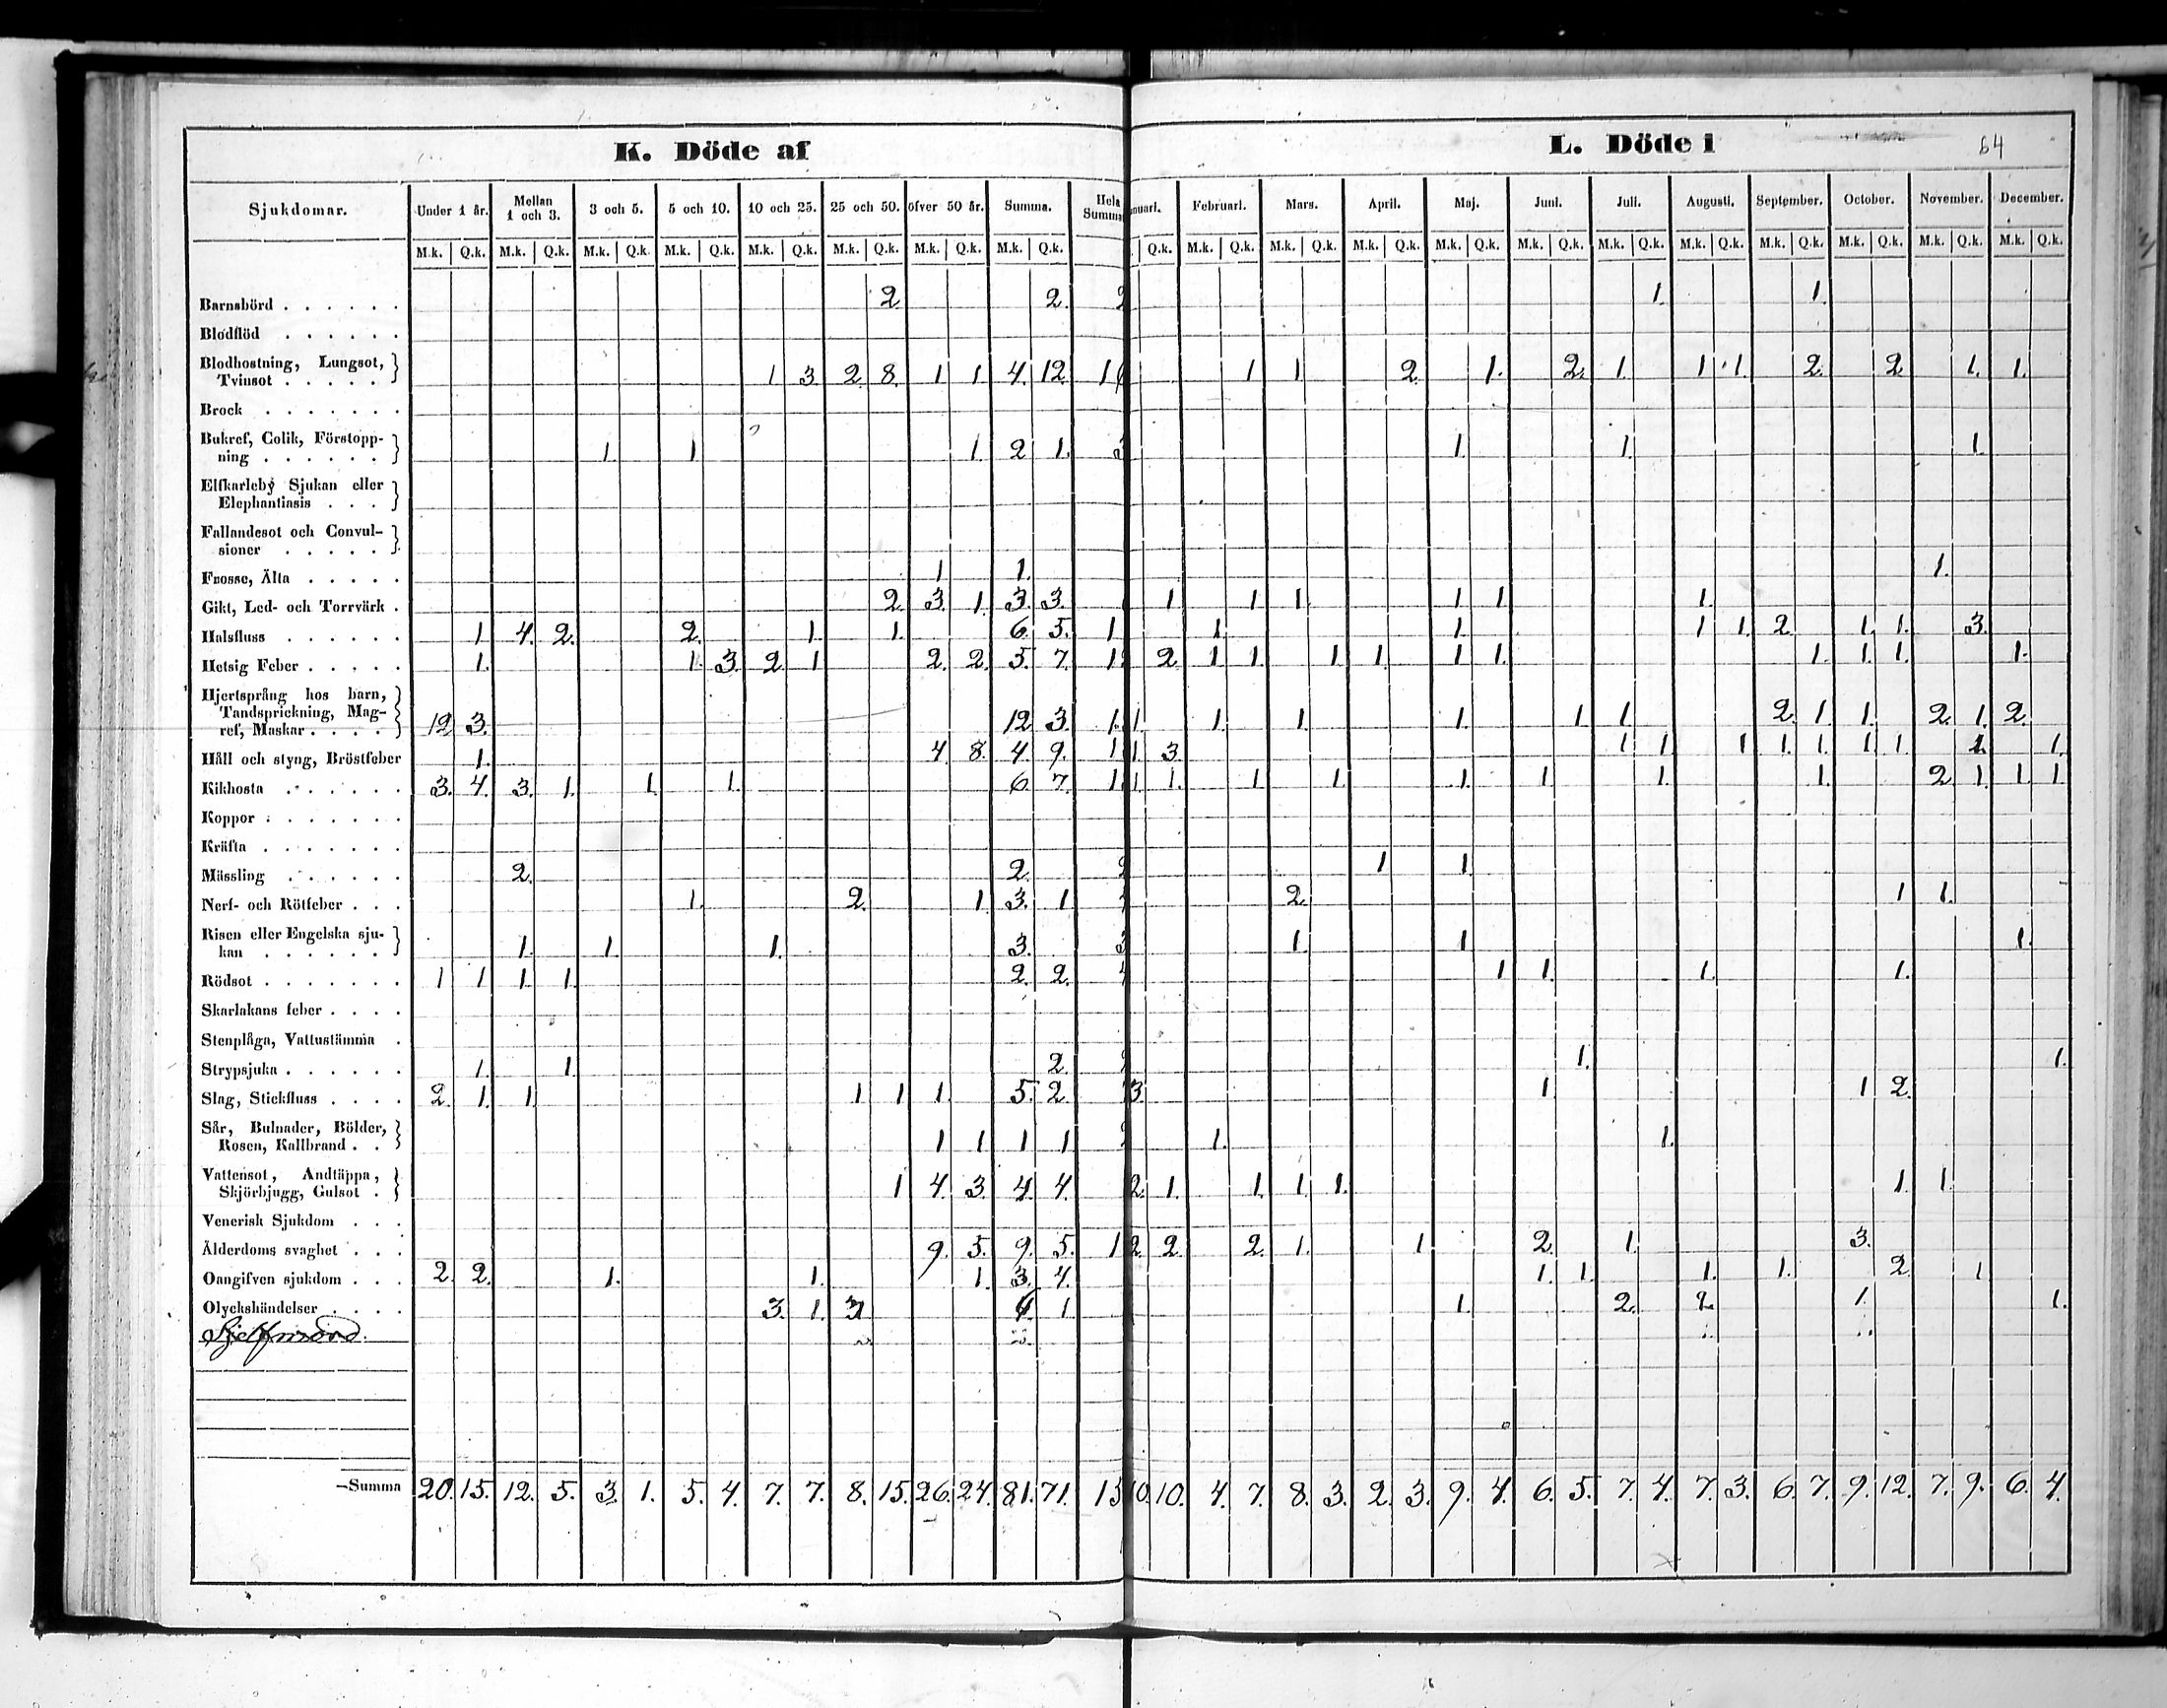 K. Döde af
L. Döde i 64
Sjukdomar. Under 1 år. Mellan 1 och 3. 3 och 5. 5 och 10. 10 och 25. 25 och 50. öfver 50 år. Summa. Hela Summa
nuari. Februari. Mars. April. Maj. Juni. Juli. Augusti. September. October. November. December.
M.k. Q.k. M.k. Q.k. M.k. Q.k. M.k. Q.k. M.k. Q.k. M.k. Q.k. M.k. Q.k. M.k. Q.k. Q.k. M.k. Q.k. M.k. Q.k. M.k. Q.k. M.k. Q.k. M.k. Q.k. M.k. Q.k. M.k. Q.k. M.k. Q.k. M.k. Q.k. M.k. Q.k. M.k. Q.k.
Barnsbörd . . . . . . 2 2. 2 1. 1.
Blodflöd . . . . . .
Blodhostning, Lungsot,
Tvinsot . . . . . 1 3 2. 8. 1 1. 4. 12. 1 1 1 2. 1. 2. 1. 1 1. 2. 2 1. 1.
Brock . . . . . . .
Bukref, Colik, Förstopp-
ning . . . . . . 1. 1 1. 2 1. 3 1. 1. 1.
Elfkarleby Sjukan eller
Elephantiasis . . .
Fallandesot och Convul-
sioner . . . . .
Frosse, Älta . . . . . 1 1. 1.
Gikt, Led- och Torrvärk . 2. 3. 1. 3. 3. 1 1 1 1 1. 1.
Halsfluss . . . . . . 1. 4. 2. 2. 1. 1. 6. 5. 1 1. 1. 1 1. 2. 1. 1. 3.
Hetsig Feber . . . . . 1. 1. 3. 2. 1 2. 2. 5. 7. 1 2. 1 1. 1. 1. 1 1. 1. 1. 1. 1.
Hjertsprång hos barn,
Tandsprickning, Mag-
ref, Maskar . . . . 12. 3. 12. 3. 1. 1. 1. 1. 1. 1 1 2. 1 1. 2. 1. 2.
Håll och styng, Bröstfeber 1. 4. 8. 4. 9. 1 1. 3. 1 1. 1 1. 1. 1. 1. 1.
Kikhosta . . . . . . 3. 4. 3. 1. 1. 1. 6. 7. 1 1. 1. 1. 1. 1. 1 1. 1. 2. 1. 1. 1.
Koppor . . . . . . .
Kräfta . . . . . . .
Mässling . . . . . . 2. 2. 2 1 1.
Nerf- och Rötfeber . . . 1. 2. 1. 3. 1 2. 1 1.
Risen eller Engelska sju-
kan . . . . . . 1. 1. 1. 3. 3 1. 1 1.
Rödsot . . . . . . . 1 1 1 1. 2. 2. 1 1. 1. 1.
Skarlakans feber . . . .
Stenplåga, Vattustämma .
Strypsjuka . . . . . . 1. 1. 2. 1. 1.
Slag, Stickfluss . . . . 2. 1. 1. 1 1 1. 5. 2. 3. 1 1 2.
Sår, Bulnader, Bölder,
Rosen, Kallbrand . . 1 1 1 1 1. 1.
Vattensot, Andtäppa,
Skjörbjugg, Gulsot . 1 4. 3. 4. 4. 2. 1. 1. 1. 1. 1. 1.
Venerisk Sjukdom . . .
Ålderdoms svaghet . . . 9. 5. 9. 5. 1 2. 2. 2. 1. 1 2. 1. 3.
Oangifven sjukdom . . . 2. 2. 1. 1. 1. 3. 4. 1. 1. 1. 1. 2. 1
Olyckshändelser . . . . 3. 1. 1 1. 2. 1. 1.
Sjelfmord.
Summa 20. 15. 12. 5. 3. 1. 5. 4. 7. 7. 8. 15. 26. 24. 81. 71. 15 10. 10. 4. 7. 8. 3. 2. 3. 9. 4. 6. 5. 7. 4. 7. 3. 6. 7. 9. 12. 7. 9. 6. 4.